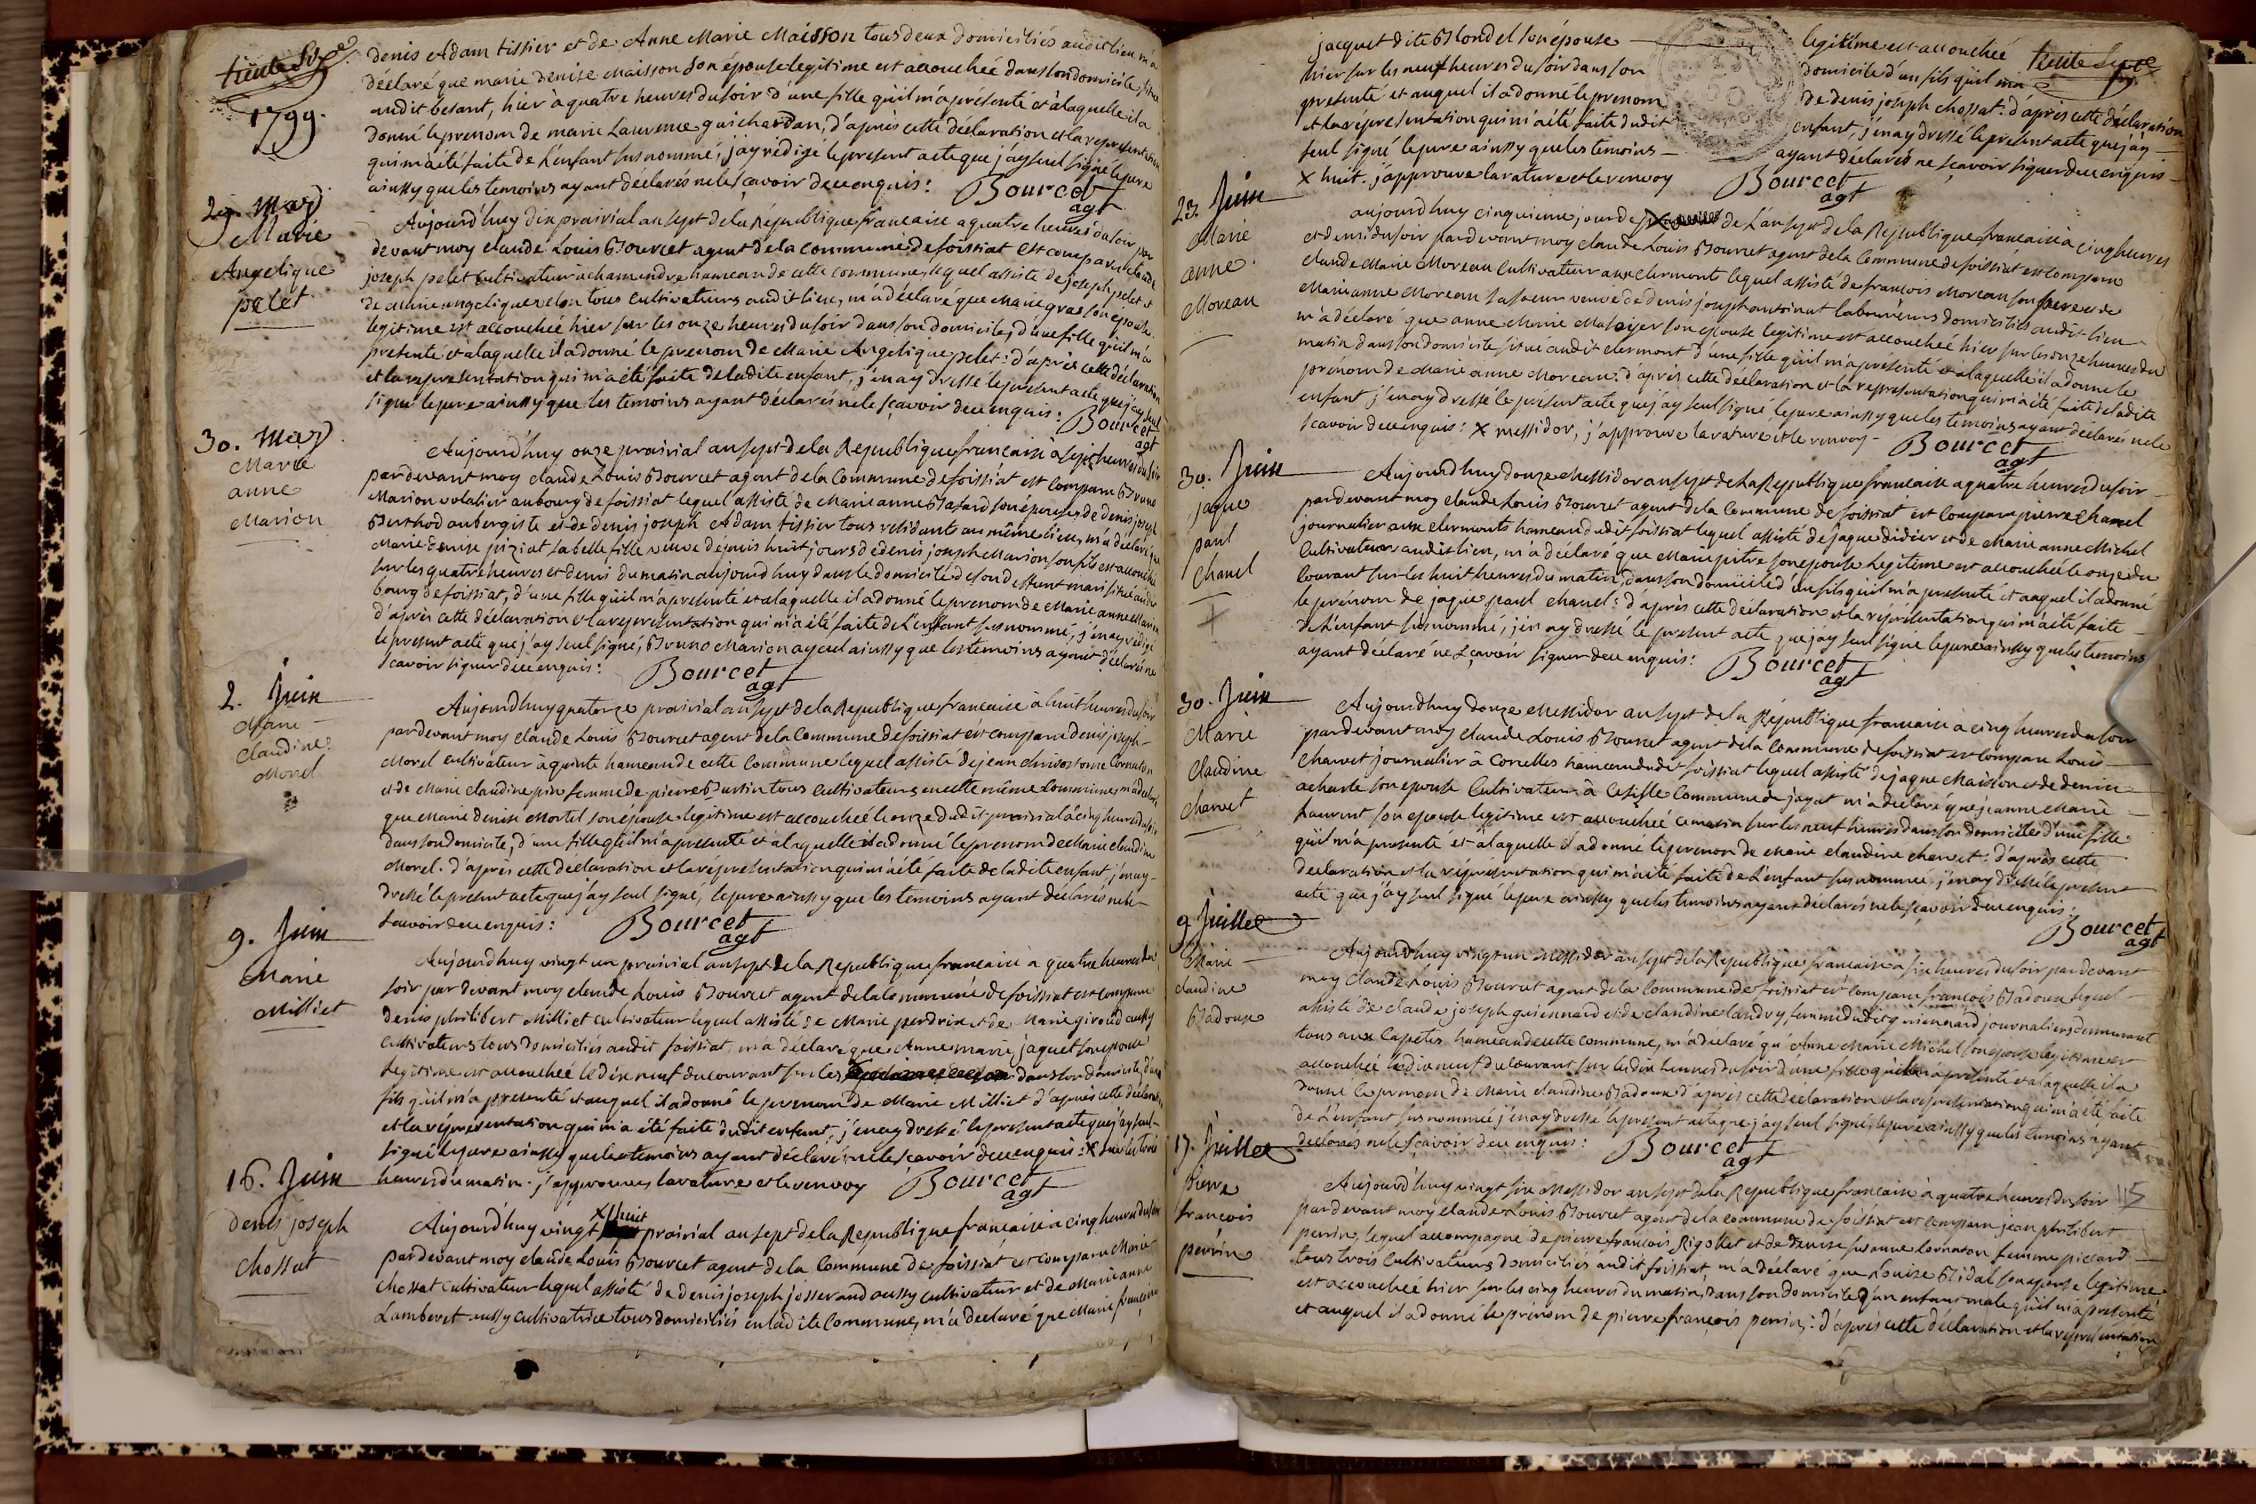 1799.
denis Adam tissier et de Anne Marie Maisson tous deux domiciliés audit lieu m'a
déclaré que marie denise Maisson son épouse legitime est accouchée dans son domicile
audit besant, hier à quatre heures du soir d'une fille qu'il m'a présenté et à laquelle il a
donné le prenom de marie Laurence guichardan, d'après cette déclaration et la representation
qui m'a été faite de l'enfant susnommé, j'ay rédigé le present acte que j'ay seul signé le pere
ainssy que les temoins ayant déclarés ne le sçavoir de ce enquis:
Bourcet
agt
29. May
Marie
Angelique
pelet
Aujourd'huy dix prairial an sept de la République francaise a quatre heures du soir par
devant moy claude Louis Bourcet agent de la commune de foissiat est comparu claude
joseph pelet cultivateur a chamandre hameau de cette commune lequel assisté de joseph pelet et
de Marie angelique velon tous cultivateurs audit lieu, m'a déclaré que Marie gras son epouse
legitime est accouchée hier sur les onze heures du soir dans son domicile, d'une fille qu'il m'a
presenté et a laquelle il a donné le prenom de Marie Angelique pelet: d'après cette déclaration
et la representation qui m'a été faite de ladite enfant, j'en ay dressé le present acte que j'ay seul
signé le pere ainssy que les temoins ayant déclarés ne le scavoir de ce enquis:
Bourcet
agt
30. May
Marie
anne
Marion
Aujourd'huy onze prairial an sept de la Republique francaise à sept heures du soir
pardevant moy claude Louis Bourcet agent de la Commune de foissiat est comparu Bruno
Marion volatier au bourg de foissiat lequel assisté de Marie anne Bafard son épouse, de denis joseph
Berthod aubergiste et de denis joseph Adam tissier tous residants au même lieu, m'a déclaré que
Marie denise piziat sa belle fille veuve depuis huit jours de denis joseph Marion son fils est accouchée
sur les quatre heures et demi du matin aujourd'huy dans le domicile de son deffunt mari situé audit
bourg de foissiat, d'une fille qu'il m'a presenté et a laquelle il a donné le prenom de Marie anne Marion
d'après cette déclaration et la representation qui m'a été faite de l'enfant susnommé, j'en ay rédigé
le present acte que j'ay seul signé, Bruno Marion ayeul ainssy que les temoins ayant déclarés ne
scavoir signer de ce enquis:
Bourcet
agt
2. Juin
Marie
claudine
Morel
Aujourd'huy quatorze prairial an sept de la Republique francaise à huit heures du soir
pardevant moy claude Louis Bourcet agent de la Commune de foissiat est comparu denis joseph
Morel cultivateur a quinte hameau de cette commune lequel assisté de jean chrisostome Cornaton
et de Marie claudine pin femme de pierre Burtin tous cultivateurs en cette même commune, m'a déclaré
que Marie denise Mortel son épouse legitime est accouchée le onze dudit prairial à cinq heures du soir
dans son domicile, d'une fille qu'il m'a presenté et a laquelle il a donné le prenom de Marie claudine
Morel. d'après cette déclaration et la représentation qui m'a été faite de ladite enfant j'en ay
dressé le present acte que j'ay seul signé, le pere ainssy que les temoins ayant déclarés ne le
scavoir de ce enquis:
Bourcet
agt
9. Juin
Marie
Milliet
Aujourd'huy vingt un prairial an sept de la Republique francaise a quatre heures du
soir par devant moy claude Louis Bourcet agent de la commune de foissiat est comparu
denis philibert Milliet cultivateur lequel assisté de Marie perdrix et de Marie giroud aussy
cultivateurs tous domiciliés audit foissiat m'a déclaré que Anne marie jaquet son epouse
legitime est accouchée le dix neuf du courant sur les dans son domicile d'un
fils qu'il m'a presenté et auquel il a donné le prenom de Marie Milliet d'après cette déclaration
et la représentation qui m'a été faite dudit enfant, j'en ay dressé le present acte que j'ay seul
signé le pere ainssy que les temoins ayant déclaré ne le scavoir de ce enquis: X sur les trois
heures du matin. j'approuve la rature et le renvoy
Bourcet
agt
16. Juin
denis joseph
chossat
Aujourd'huy vingt X huit prairial an sept de la Republique francaise a cinq heures du soir
pardevant moy claude Louis Bourcet agent de la Commune de foissiat est comparu Marie
chossat cultivateur lequel assisté de denis joseph josserand aussy cultivateur et de Marie anne
Lamberet aussy cultivatrice tous domiciliés en ladite commune, m'a declaré que Marie françoise
jacquet dite Blondel son épouse legitime est accouchée
hier sur les neuf heures du soir dans son domicile d'un fils qu'il m'a
presenté et auquel il a donné le prenom de denis joseph chossat: d'après cette déclaration
et la representation qui m'a été faite dudit enfant, j'en ay dressé le présent acte que j'ay
seul signé le pere ainssy que les temoins ayant déclarés ne scavoir signer de ce enquis
X huit. j'approuve la rature et le renvoy
Bourcet
agt
23. Juin
Marie
anne
Moreau
aujourd'huy cinquieme jour de X de l'an sept de la Republique francaise a cinq heures
et demi du soir pardevant moy claude Louis Bourcet agent de la Commune de foissiat est comparu
claude Marie Moreau cultivateur aux clermonts lequel assisté de francois Moreau son frere et de
Marie anne Moreau sa soeur veuve de denis joseph laboureurs domiciliés audit lieu
m'a déclaré que anne Marie son épouse legitime est accouchée hier sur les onze heures du
matin dans son domicile situé audit clermont d'une fille qu'il m'a présenté et a laquelle il a donné le
prénom de Marie anne Moreau: d'après cette déclaration et la representation qui m'a été faite de ladite
enfant j'en ay dressé le présent acte que j'ay seul signé le pere ainssy que les temoins ayant déclarés ne le
scavoir de ce enquis: X messidor, j'approuve la rature et le renvoy
Bourcet
agt
30. Juin
jaque
paul
chanel
Aujourd'huy douze Messidor an sept de la Republique francaise a quatre heures du soir
pardevant moy claude Louis Bourcet agent de la Commune de foissiat est comparu pierre chanel
journalier aux clermonts hameau dudit foissiat lequel assisté de jaque didier et de Marie anne Michel
cultivateurs audit lieu, m'a déclaré que Marie pitre son epouse legitime est accouchée le onze du
courant sur les huit heures du matin, dans son domicile d'un fils qu'il m'a presenté et auquel il a donné
le prénom de jaque paul chanel: d'après cette déclaration et la répresentation qui m'a été faite
de l'enfant susnommé, j'en ay dressé le present acte que j'ay seul signé le pere ainssy que les temoins
ayant déclaré ne scavoir signer de ce enquis:
Bourcet
agt
30. Juin
Marie
claudine
charvet
Aujourd'huy douze Messidor an sept de la République francaise a cinq heures du soir
pardevant moy claude Louis Bourcet agent de la Commune de foissiat est comparu Louis
charvet journalier à Corcelles hameau dudit foissiat lequel assisté de jaque Maisson et de denise
son epouse cultivateurs à commune de jayat m'a déclaré que jeanne Marie
laurent son epouse legitime est accouchée ce matin sur les neuf heures dans son domicile d'une fille
qu'il m'a presenté et a laquelle il a donné le prenom de Marie claudine charvet: d'après cette
déclaration et la répresentation qui m'a été faite de l'enfant susnommé j'en ay dressé le present
acte que j'ay seul signé le pere ainssy que les temoins ayant déclarés ne le scavoir de ce enquis:
Bourcet
agt
9. Juillet
Marie
claudine
Badoux
Aujourd'huy vingt un Messidor an sept de la Republique francaise a six heures du soir par devant
moy claude Louis Bourcet agent de la Commune de foissiat est comparu françois Badoux lequel
assisté de claude joseph guiennard et de claudine landry femme dudit guiennard journaliers demeurant
tous aux Capettes hameau de cette commune, m'a déclaré qu'Anne Marie Michel son epouse legitime est
accouchée le dix neuf du courant sur les dix heures du soir d'une fille qu'il m'a présenté et a laquelle il a
donné le prenom de Marie claudine Badoux d'après cette déclaration et la representation qui m'a été faite
de l'enfant susnommé j'en ay dressé le present acte que j'ay seul signé, le pere ainssy que les temoins ayant
déclarés ne le scavoir de ce enquis:
Bourcet
agt
17. Juillet
pierre
françois
perrin
Aujourd'huy vingt six Messidor an sept de la Republique francaise à quatre heures du soir
pardevant moy claude Louis Bourcet agent de la commune de foissiat est comparu jean philibert
perrin, lequel accompagné de pierre francois Rigollet et de denise susanne Cornaton femme piccard
tous trois cultivateurs domiciliés audit foissiat, m'a déclaré que Louise Vidal son epouse legitime
est accouchée hier sur les cinq heures du matin, dans son domicile d'un enfant male qu'il m'a presenté
et auquel il a donné le prénom de pierre françois perrin: d'après cette déclaration et la representation